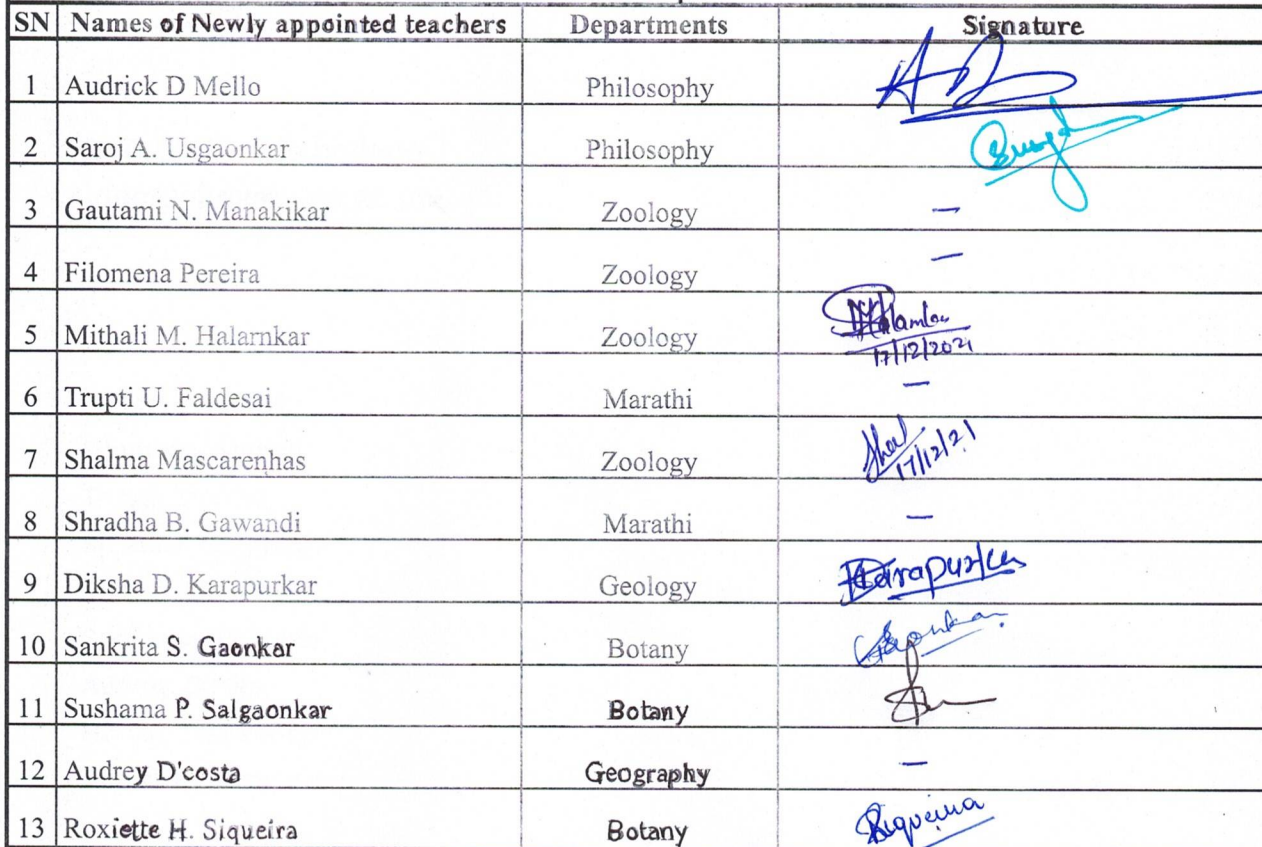 SN Names of Newly appointed teachers Departments Signature
1 Audrick D Mello Philosophy
2 Saroj A. Usgaonkar Philosophy
3 Gautami N. Manakikar Zoology —
4 Filomena Pereira Zoology —
5 Mithali M. Halarnkar Zoology
17/12/2021
6 Trupti U. Faldesai Marathi —
7 Shalma Mascarenhas Zoology
17/12/21
8 Shradha B. Gawandi Marathi —
9 Diksha D. Karapurkar Geology
10 Sankrita S. Gaonkar Botany
11 Sushama P. Salgaonkar Botany
12 Audrey D'costa Geography —
13 Roxiette H. Siqueira Botany Siqueira